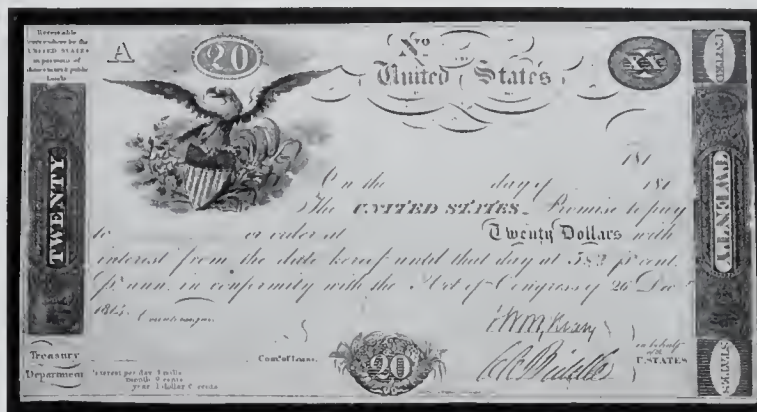 Receivable
every where by the
UNITED STATES
in payment of
duties taxes & public
lands
A
20
No
United States
XX
UNITED
TWENTY
TWENTY
181
On the day of 181
The UNITED STATES Promise to pay
to or order at Twenty Dollars with
interest from the date hereof until that day at 5 2/5 pr cent.
pr ann. in conformity with the Act of Congress of 26 Decr
1814.
Countersign
Treasury
Department
Comr of Loans.
Interest per day 3 mills
month 9 cents
year 1 dollar 8 cents
20
on behalf
of the
U. STATES
STATES